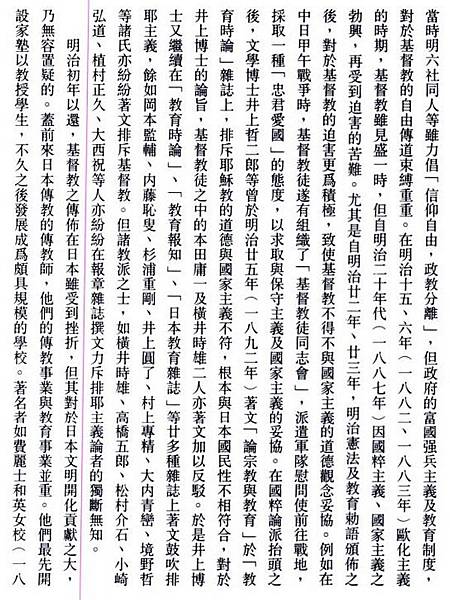 當時明六社同人等雖力倡「信仰自由，政教分離」，但政府的富國强兵主義及教育制度，
對於基督教的自由傳道束縛重重。在明治十五、六年（一八八二、一八八三年）歐化主義
的時期，基督教雖見盛一時，但自明治二十年代（一八八七年）因國粹主義、國家主義之
勃興，再受到迫害的苦難。尤其是自明治廿二年、廿三年，明治憲法及教育勅語頒佈之
後，對於基督教的迫害更爲積極，致使基督教不得不與國家主義的道德觀念妥協。例如在
中日甲午戰爭時，基督教徒遂有組織了「基督教徒同志會」，派遣軍隊慰問使前往戰地，
採取一種「忠君愛國」的態度，以求取與保守主義及國家主義的妥協。在國粹論派抬頭之
後，文學博士井上哲二郎等曾於明治廿五年（一八九二年）著文「論宗教與教育」於「教
育時論」雜誌上，排斥耶穌教的道德與國家主義不符，根本與日本國民性不相符合，對於
井上博士的論旨，基督教徒之中的本田庸一及橫井時雄二人亦著文加以反駁。於是井上博
士又繼續在「教育時論」、「教育報知」、「日本教育雜誌」等廿多種雜誌上著文鼓吹排
耶主義，餘如岡本監輔、內藤恥叟、杉浦重剛、井上圓了、村上專精、大內青巒、境野哲
等諸氏亦紛紛著文排斥基督教。但諸教派之士，如橫井時雄、高橋五郎、松村介石、小崎
弘道、植村正久、大西祝等人亦紛紛在報章雜誌撰文力斥排耶主義論者的獨斷無知。
明治初年以還，基督教之傳佈在日本雖受到挫折，但其對於日本文明開化貢獻之大，
乃無容置疑的。蓋前來日本傳教的傳教師，他們的傳教事業與教育事業並重。他們最先開
設家塾以教授學生，不久之後發展成爲頗具規模的學校。著名者如費麗士和英女校（一八